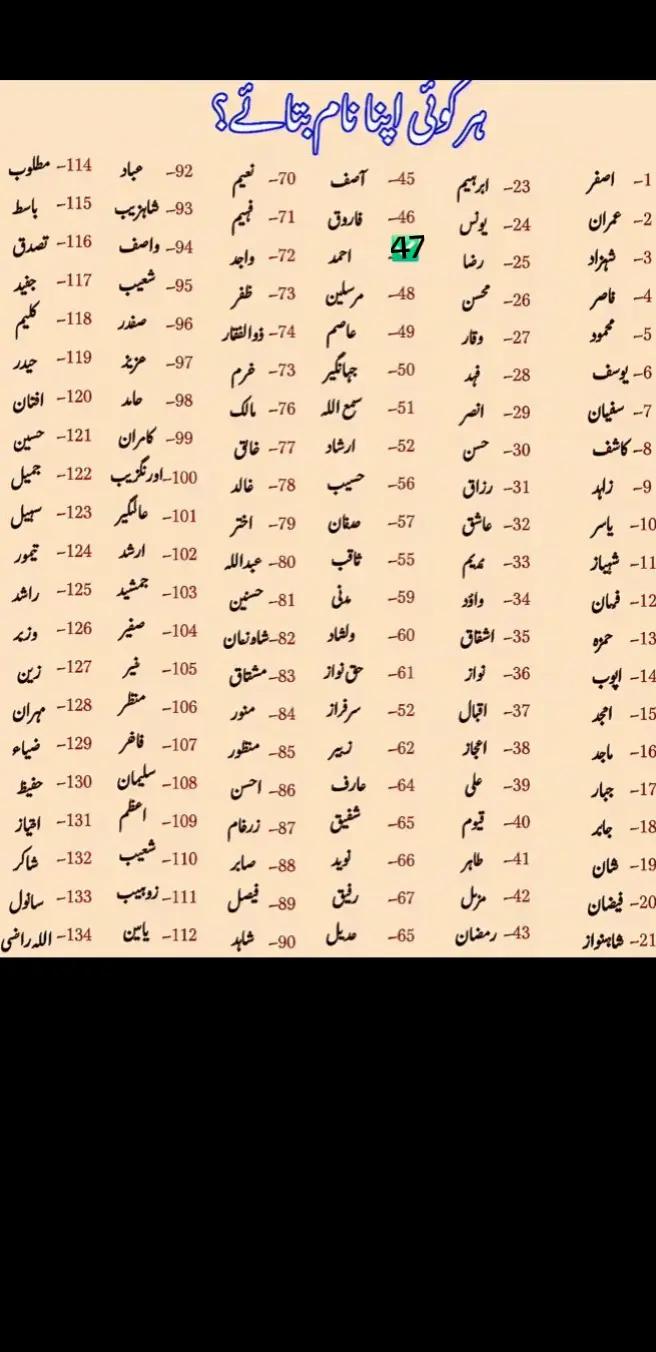 ہر کوئی اپنا نام بتائے؟
1– اصفر
2– عمران
3– شہزاد
4– فاصر
5– محمود
6– یوسف
7– سفیان
8– کاشف
9– زاہد
10– یاسر
11– شہباز
12– فہان
13– حمزہ
14– ایوب
15– امجد
16– ماجد
17– جبار
18– جابر
19– شان
20– فیضان
21– شاہنواز
23– ابرہیم
24– یونس
25– رضا
26– محسن
27– وقار
28– فہد
29– انصر
30– حسن
31– رزاق
32– عاشق
33– ندیم
34– واؤد
35– اشفاق
36– نواز
37– اقبال
38– اعجاز
39– علی
40– قیوم
41– طاہر
42– مزمل
43– رمضان
45– آصف
46– فاروق
47 احمد
48– مرسلین
49– عاصم
50– جہانگیر
51– سمیع اللہ
52– ارشاد
56– حسیب
57– صفان
55– ثاقب
59– مدنی
60– ولشاد
61– حق نواز
52– سرفراز
62– زبیر
64– عارف
65– شفیق
66– نوید
67– رفیق
65– عدیل
70– نعیم
71– فہیم
72– واجد
73– ظفر
74– ذوالفقار
73– خرم
76– مالک
77– خالق
78– خالد
79– اختر
80– عبداللہ
81– حسنین
82– شاہ زمان
83– مشتاق
84– منور
85– منظور
86– احسن
87– زرغام
88– صابر
89– فیصل
90– شاہد
92– عباد
93– شاہزیب
94– واصف
95– شعیب
96– صفدر
97– عزیز
98– حامد
99– کامران
100– اورنگزیب
101– عالمگیر
102– ارشد
103– جمشید
104– صفیر
105–
106– منظر
107– فاخر
108– سلیمان
109– اعظم
110– شعیب
111– زوہیب
112– یاسین
114– مطلوب
115– باسط
116– تصدق
117– جفید
118– کلیم
119– حیدر
120– افتان
121– حسین
122– جمیل
123– سہیل
124– تیمور
125– راشد
126– وزیر
127– زین
128– مہران
129– ضیاء
130– حفیظ
131–
132– شاکر
133– سانول
134– اللہ راضی